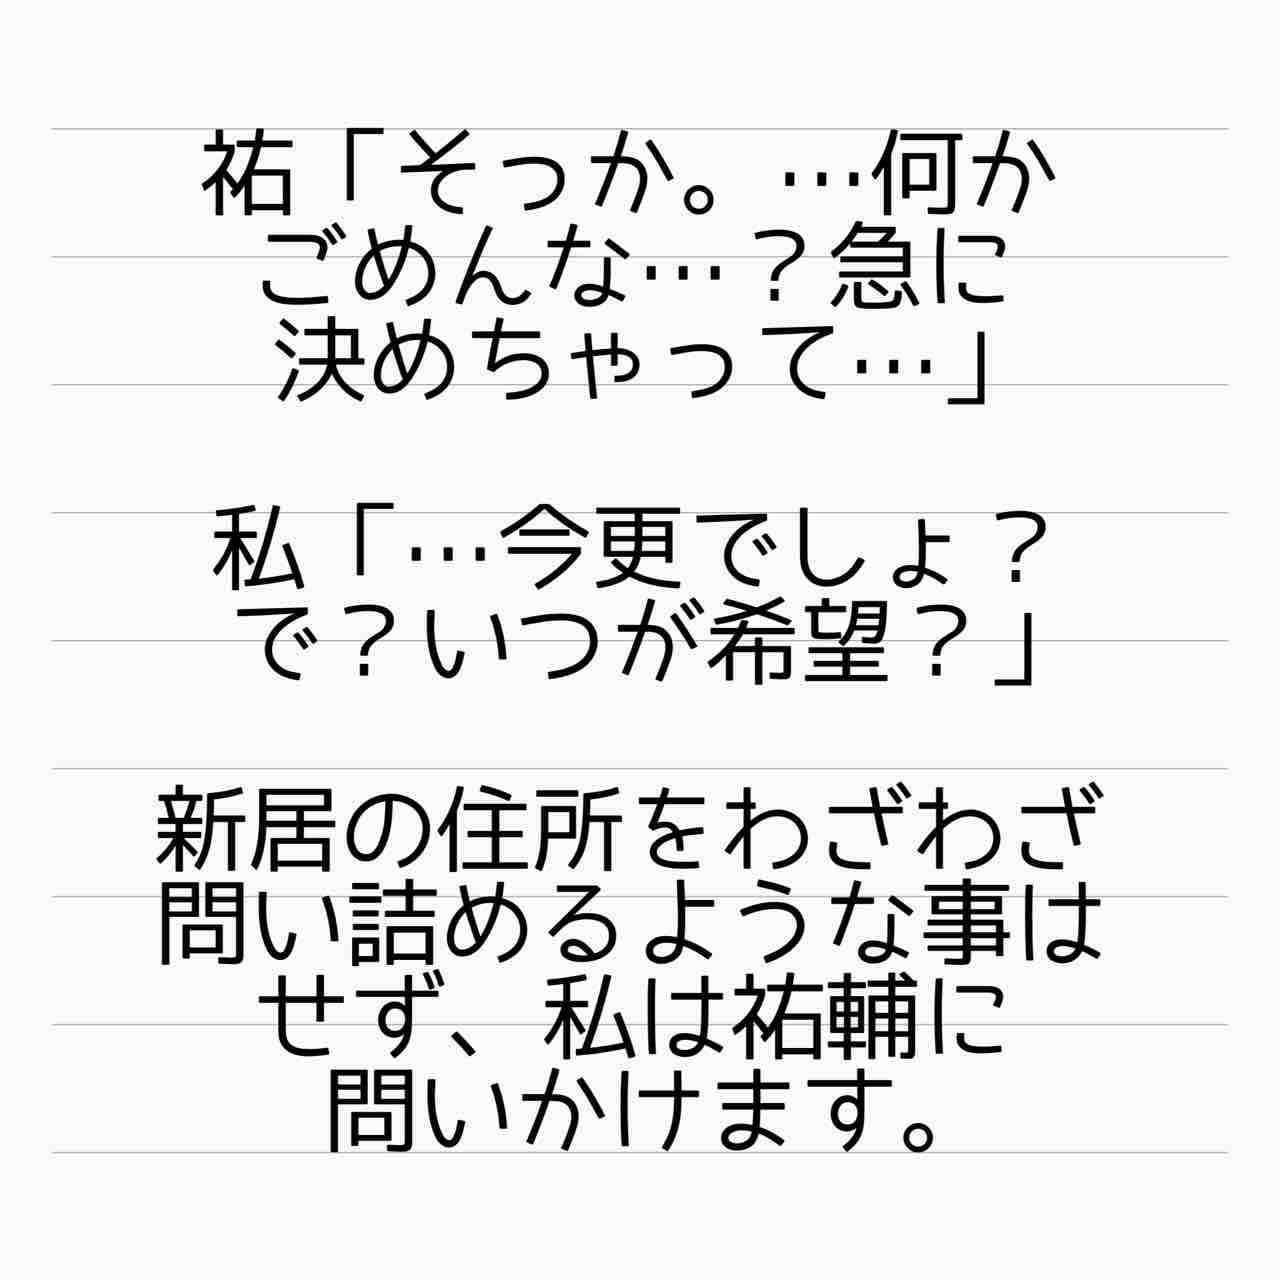 祐「そっか。…何か
ごめんな…？急に
決めちゃって…」
私「…今更でしょ？
で？いつが希望？」
新居の住所をわざわざ
問い詰めるような事は
せず、私は祐輔に
問いかけます。